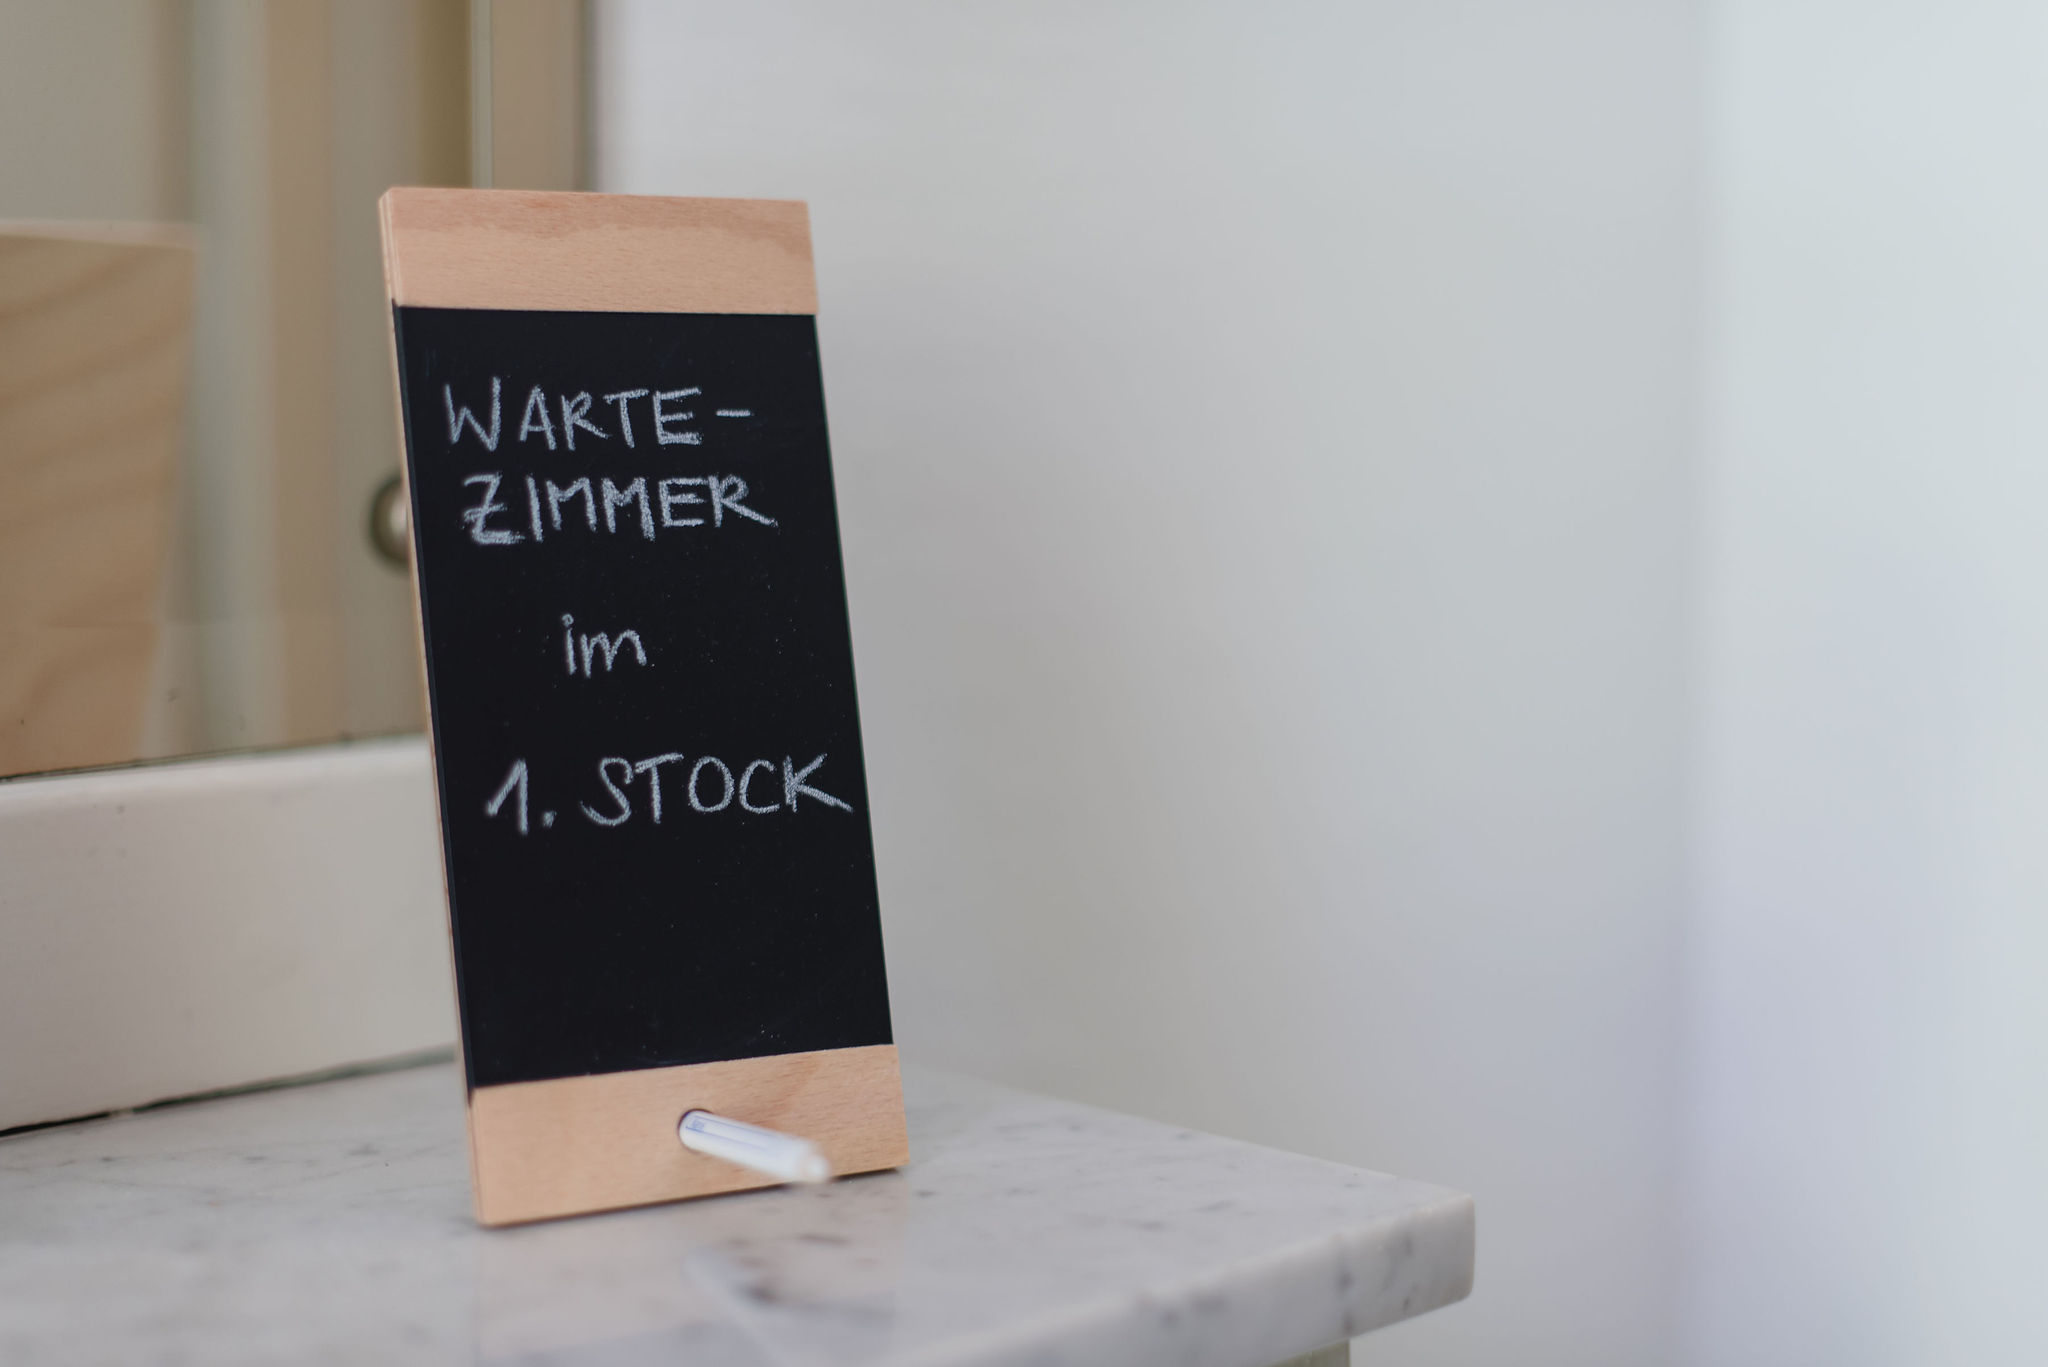 WARTE-
ZIMMER
im
1. STOCK